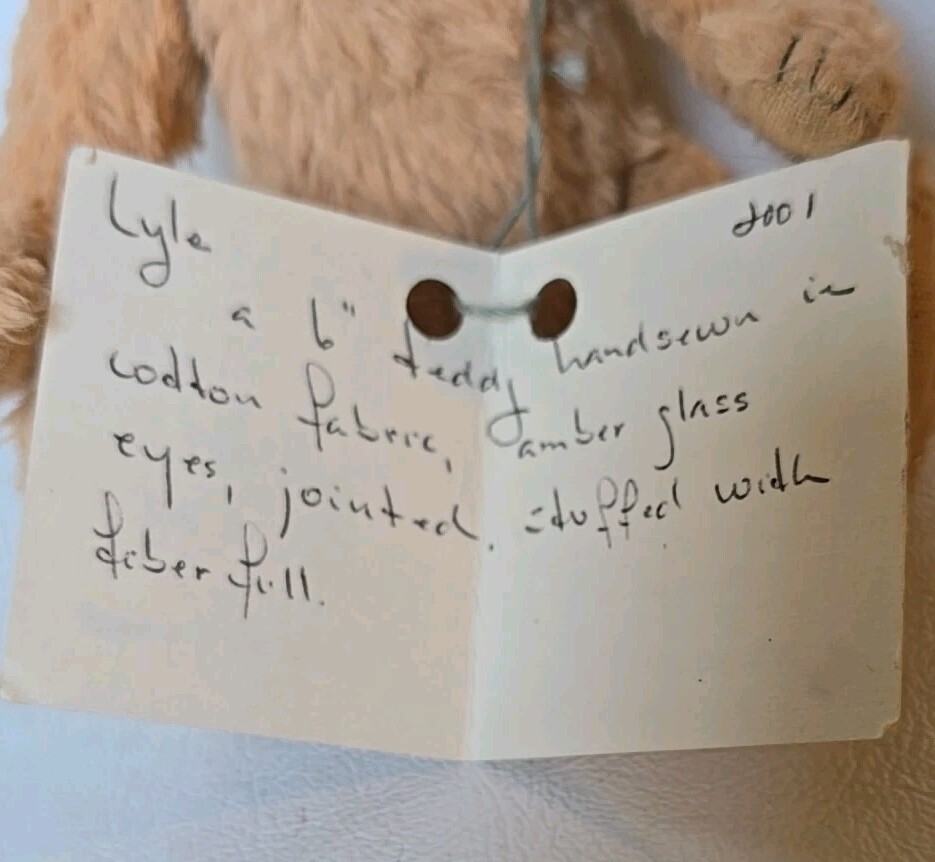 Lyle 2001
a 6" teddy handsewn in
cotton fabric, amber glass
eyes, jointed. stuffed with
fiber fill.